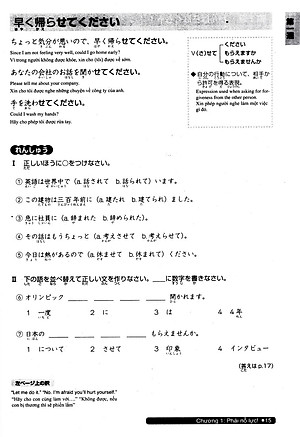 早く帰らせてください
ちょっと気分が悪いので、早く帰らせてください。
Since I am not feeling very well, could I go home early?
Vì trong người không được khỏe, xin cho (tôi) được về sớm.
あなたの会社のお話を聞かせてください。
Please tell me about your company.
Xin cho tôi được nghe những chuyện về công ty của anh.
手を洗わせてください。
Could I wash my hands?
Hãy cho phép tôi được rửa tay.
V(さ)せて
ください
もらえますか
もらえませんか
◆自分の行動について、相手か
ら許可を得る表現。
Expression used when asking for for-
giveness from the other person.
Xin phép người nghe làm một việc
gì đó.
れんしゅう
I 正しいほうに○をつけなさい。
① 英語は世界中で(a. 話されて b. 話られて)います。
② この建物は三百年前に(a. 建たれ b. 建てられ)ました。
③ 急に社員に(a. 辞まれた b. 辞められた)。
④ その話はもうちょっと(a. 考えさせて b. 考えらせて)。
⑤ 今日は熱があるので(a. 休ませて b. 休まれて)ください。
II 下の語を並べ替えて正しい文を作りなさい。___に数字を書きなさい。
⑥ オリンピック ___ ___ ___ ___ 開かれます。
1 一度 2 に 3 は 4 4年
⑦ 日本の ___ ___ ___ ___ もらえませんか。
1 について 2 させて 3 印象 4 インタビュー
(答えは p.17)
左ページ上の訳
"Let me do it." "No. I'm afraid you'll hurt yourself."
"Hãy cho con cùng làm với...." "Không được, nếu
con bị thương thì sẽ phiền lắm"
Chương 1: Phải nỗ lực! 15